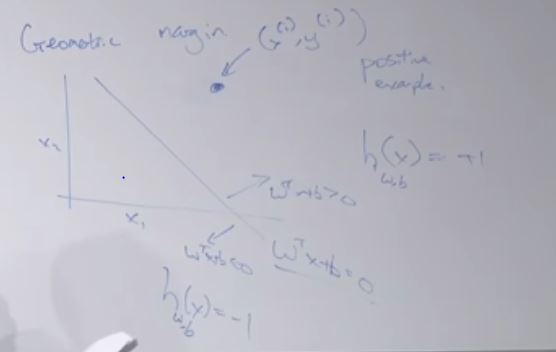 Geometric margin (x⁽ⁱ⁾, y⁽ⁱ⁾)
positive
example.
x₂
h_{w,b}(x) = +1
wᵀx+b>0
x₁
wᵀx+b<0
wᵀx+b=0
h_{w,b}(x) = -1